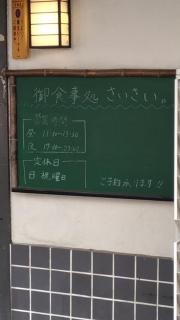 御食事処 さいさい。
営業時間
昼 11:30~13:30
夜 17:00~
定休日
日 祝 曜日
ご予約承ります!!